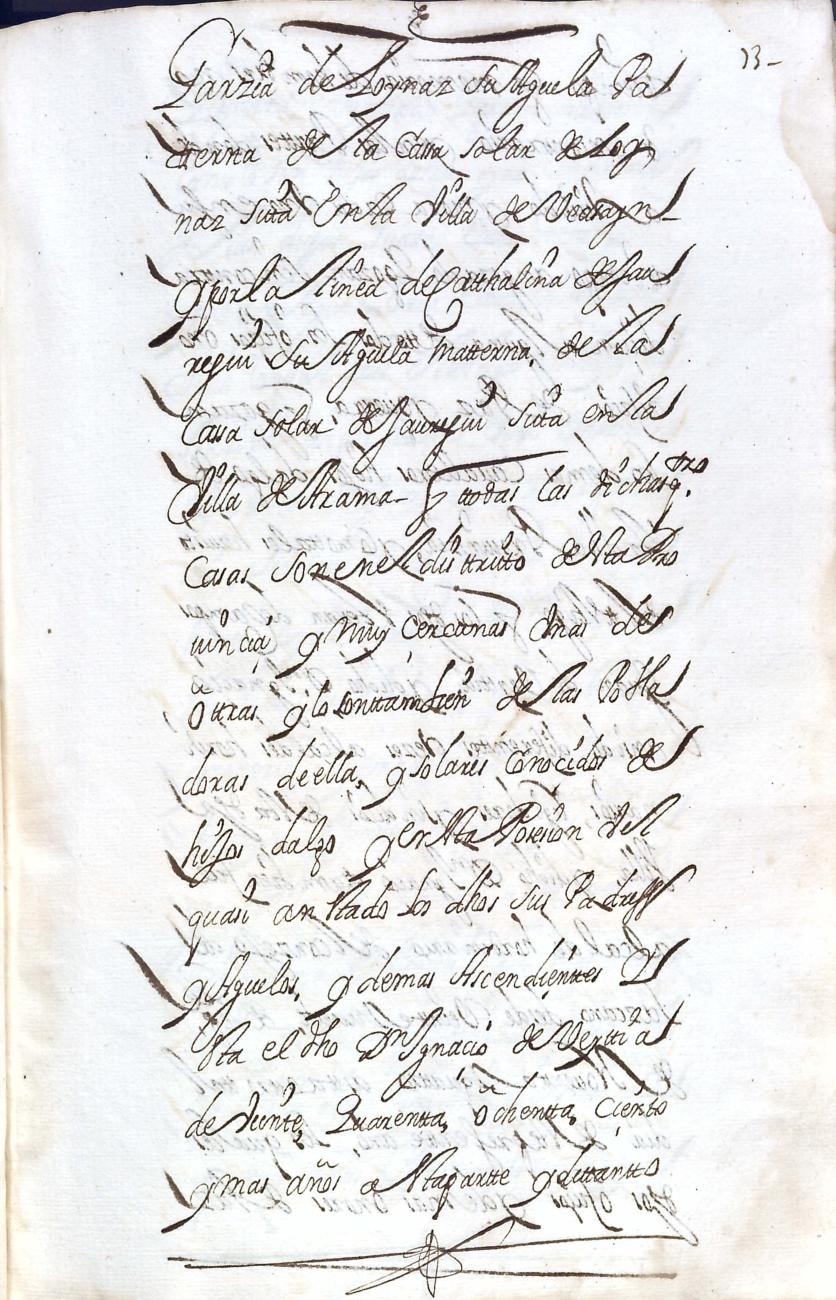 13-
Garzia de Loynaz su Aguela Pa
tterna de la Cassa solar de Loy
naz sitta En la Villa de Veasayn
y por la linea de Catthalina de Jau
regui su Aguela matterna, de la
Cassa solar de Jauregui sitta en la
Villa de Atrama- y ttodas las dichas q.tro
Casas son en el disttritto de esta Pro
uincia y muy cercanas Vnas de
Ottras y lo son ttambien de las Pobla
doras de ella, y solares Conocidos de
hijos dalgo y en esta Posesion vel
quasi an estado los dhos sus Padres
y Aguelos, y demas Ascendienttes Y
esta el dho Dn Ignacio de Verttia
de Veinte, Quarentta, Ochentta, Ciento
y mas años a esta partte y de ttantto